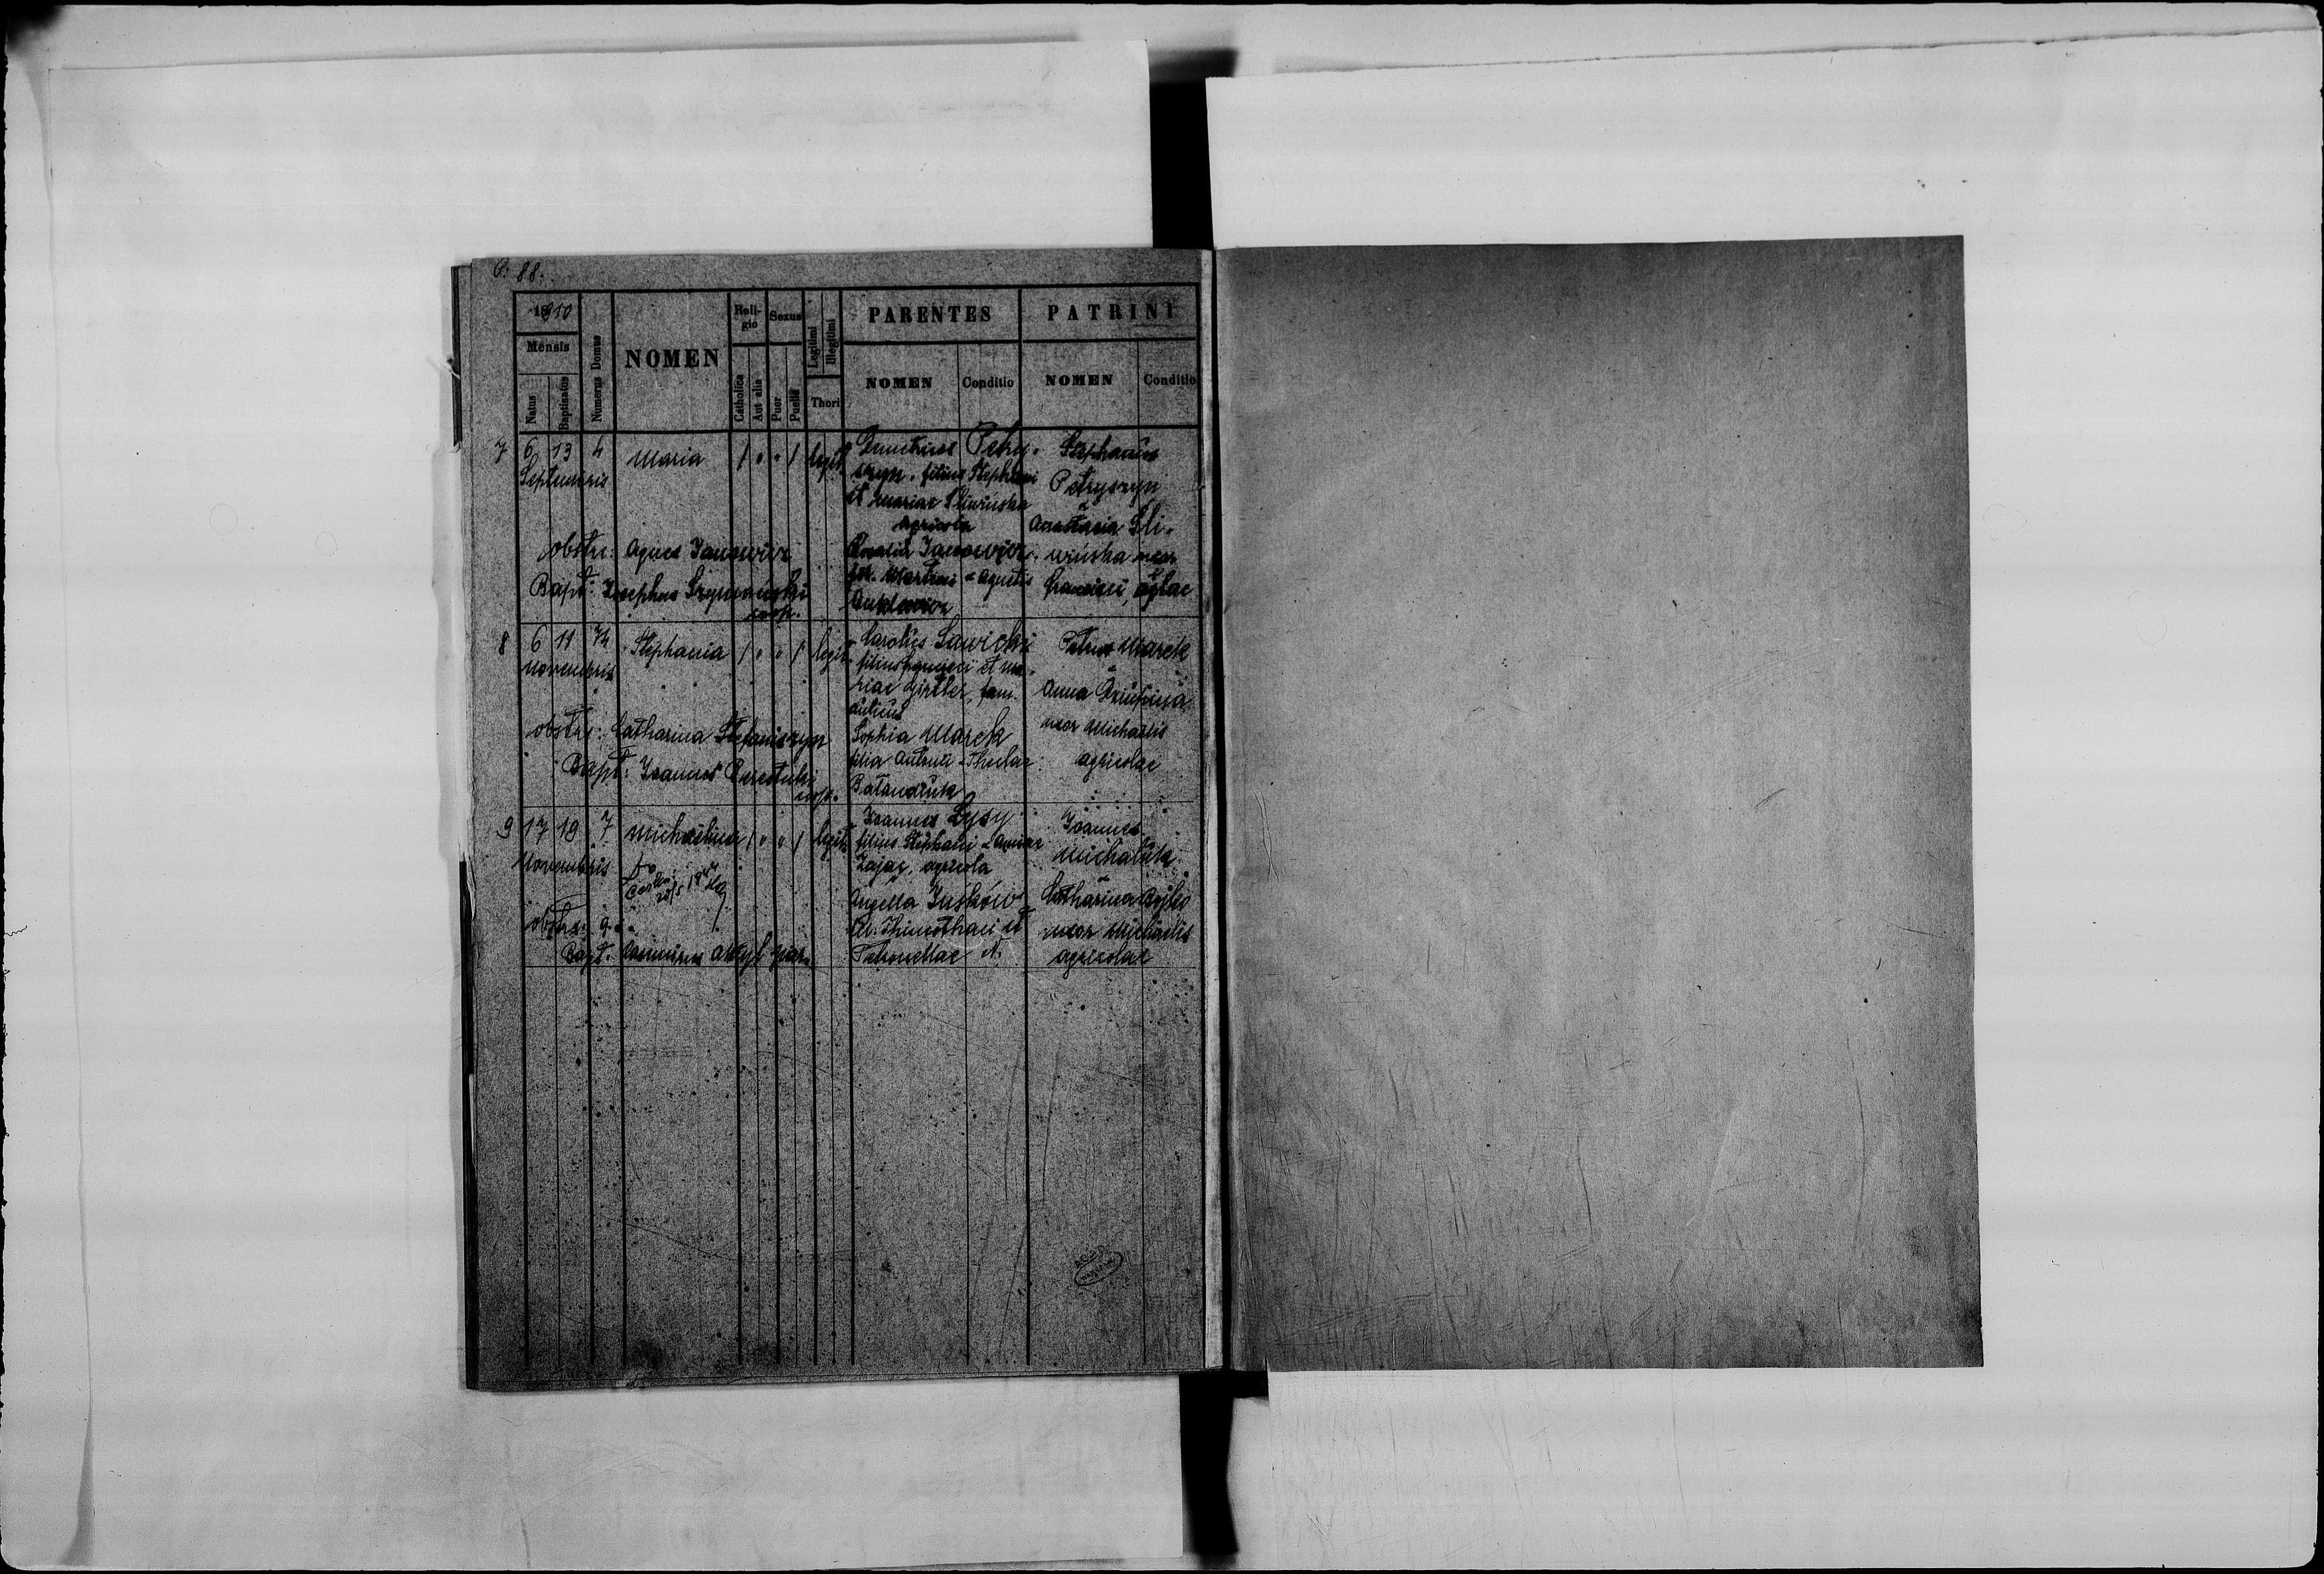 P. 88.
1910
Mensis
Natus
Baptisatus
Numerus Domus
NOMEN
Religio
Catholica
Aut alia
Sexus
Puer
Puella
Legitimi
Illegitimi
Thori
PARENTES
NOMEN
Conditio
PATRINI
NOMEN
Conditio
7 6 13 4 Maria / " " / legit.
Septembris
Petry-
szyn, filius Stephani
et Mariae
agricola
Rosalia Janowicz
fil. Martini - Agnetis
Stephanus
Petryszyn
Anastasia Śli-
wińska uxor
agricolae
obstr: Agnes Janowicz
Bapt: Josephus Szymański
coop.
8 6 11 74 Stephania / " " / legit.
Novembris
Carolus Sawicki
filius Francisci et Ma-
riae Girtler, fam.
Sophia Marek
filia Antonii - Theclae
Batandiuk
Petrus Marek
Anna
uxor Michaelis
agricolae
obstr: Catharina Stefaniszyn
Bapt: Joannes
coop.
9 17 18 7 Michaelina / " " / legit.
Novembris
Joannes Łysy
filius Stephani - Annae
Zając, agricola
Angella Juśków
fil. Thimothaei et
Petronellae N.
Joannes
Michaluk
Catharina Bojko
uxor Michaelis
agricolae
obstr: q. s.
Bapt. Casimirus